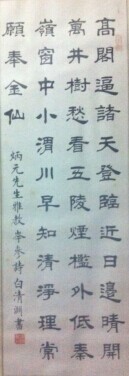 高閣逼諸天登臨近日邊晴開
萬井樹愁看五陵煙檻外低秦
嶺窗中小渭川早知清淨理常
願奉金仙
炳元先生雅教岑參詩白清書